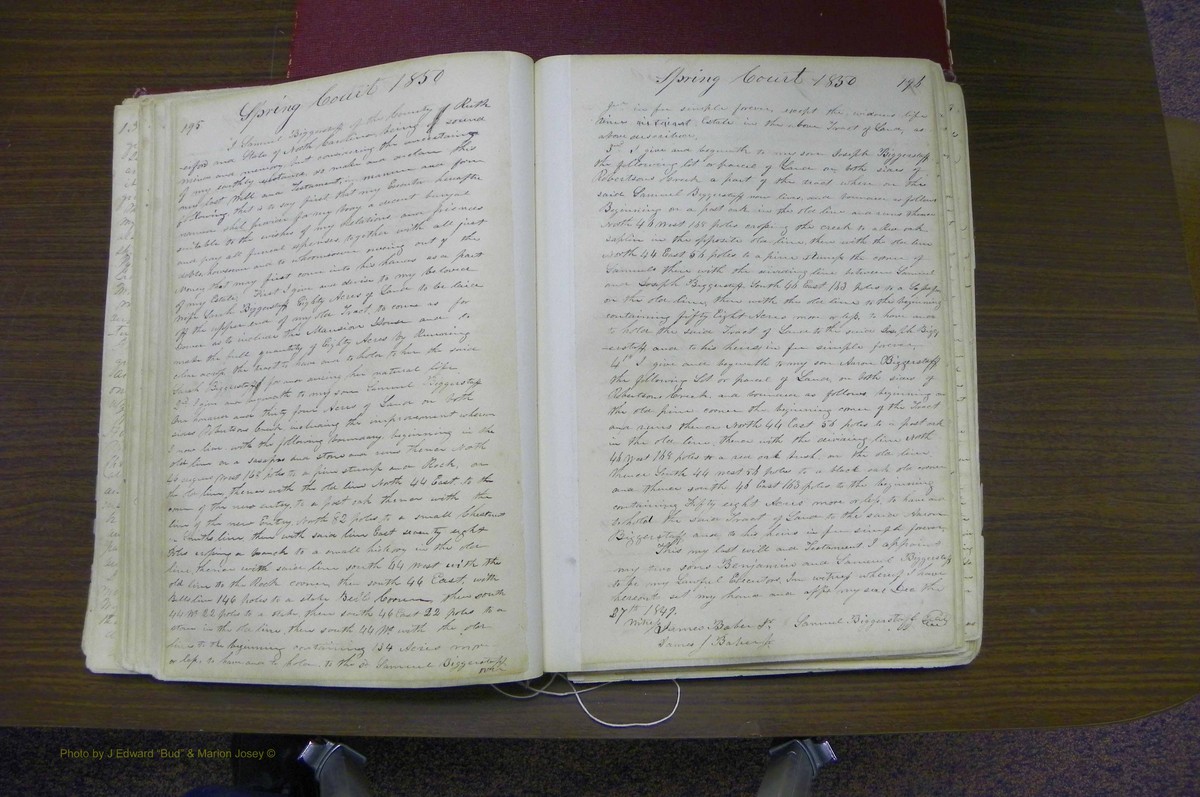 Spring Court 1850
195
I Samuel Biggerstaff of the County of Ruth
erford and State of North Carolina being of sound
mind and memory but considering the uncertainty
of my earthly existance do make and declare this
my last Will and Testament in manner and form
following that is to say first that my Executor hereafter
named shall provide for my body a decent burying
suitable to the wishes of my relations and friends
and pay all funeral expenses together with all just
debts howsoever and to whomsoever owing out of the
money that may first come into his hands as a part
of my Estate. First I give and devise to my beloved
wife Sarah Biggerstaff Eighty Acres of Land to be laid
off the upper end of my old Tract, to come as far
down as to include the Mansion House and to
make the full quantity of Eighty Acres by Running
a line across the tract to have and to hold to her the said
Sarah Biggerstaff for and during her natural life
2nd I give and bequeath to my son Samuel Biggerstaff
One hundred and thirty four Acres of Land on both
sides Robertsons Creek including the improvement whereon
I now live with the following boundary, beginning in the
old line on a sassafras and stone and runs thence North
46 degrees West 168 poles to a pine stump and Rock, on
the old line, thence with the old line North 44 East, to the
corner of the new entry, to a post oak thence with the
line of the new Entry North 82 poles to a small Chestnut
in Smiths line then with said line East seventy eight
poles crossing a branch to a small hickory in the old
line, thence with said line south 44 West with the
old line to the Rock corner, then south 44 East, with
Bells line 146 poles to a stake Bell Corner, then south
44 W 22 poles to a stake, then south 46 East 22 poles to a
stone in the old line then south 44 W with the old
line to the beginning containing 134 Acres more
or less, to have and to holden to the sd Samuel Biggerstaff
Spring Court 1850 196
in fee simple forever except the widows life
time Estate in the above Tract of Land, as
above described.
3d I give and bequeath to my son Joseph Biggerstaff
the following lot or parcel of Land on both sides of
Robertsons Creek a part of the tract where on the
said Samuel Biggerstaff now lives and bounded as follows
Beginning on a post oak in the old line and runs thence
North 46 West 168 poles crossing the creek to a red oak
saplin in the opposite old line, then with the old line
North 44 East 56 poles to a pine stump the corner of
Samuels then with the dividing line between Samuel
and Joseph Biggerstaff South 46 East 163 poles to a
on the old line, then with the old line to the beginning
containing fifty Eight Acres more or less, to have and
to hold the said Tract of Land to the said Joseph Bigg
erstaff and to his heirs in fee simple forever.
4th I give and bequeath to my son Aaron Biggerstaff
the following Lot or parcel of Land, on both sides of
Robertsons Creek and bounded as follows beginning on
the old pine corner the beginning corner of the Tract
and runs thence North 44 East 56 poles to a post oak
in the old line, thence with the dividing line North
46 West 168 poles to a red oak bush on the old line
thence South 44 West 56 poles to a black oak old corner
and thence south 46 East 163 poles to the beginning
containing Fifty eight Acres more or less, to have and
to hold the said Tract of Land to the said Aaron
Biggerstaff and to his heirs in fee simple forever,
This my last will and Testament I appoint
my two sons Benjamin and Samuel Biggerstaff
to be my Lawful Executors, In witness whereof I have
hereunto set my hand and affix my seal Dec the
27th 1849.
James Baber Sr Samuel Biggerstaff Seal
James J Baber
Photo by J Edward "Bud" & Marion Josey ©